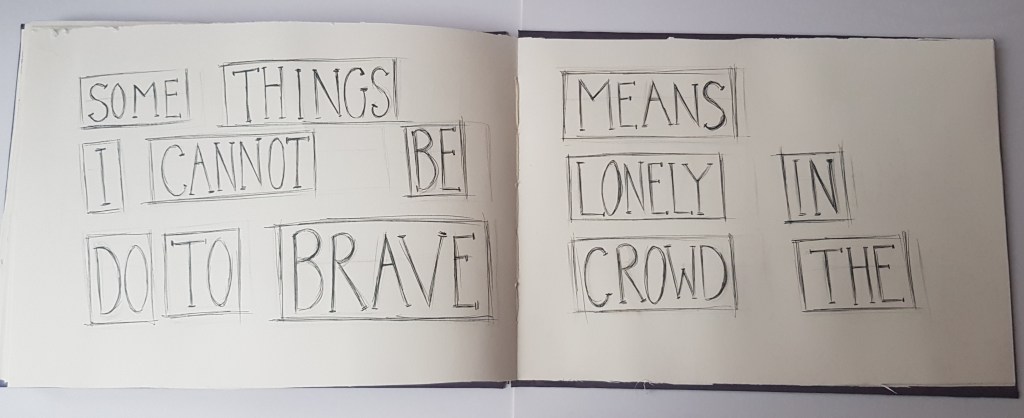 SOME THINGS
I CANNOT BE
DO TO BRAVE
MEANS
LONELY IN
CROWD THE